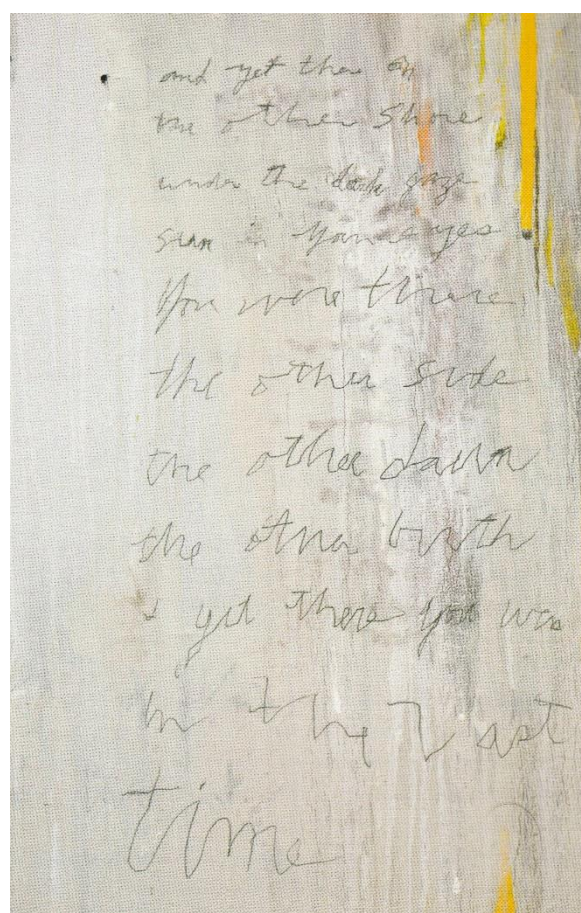 and yet there on
the other shore
under the dark gaze
sun in your eyes
you were there
the other side
the other dawn
the other birth
& yet there you was
in the vast
time